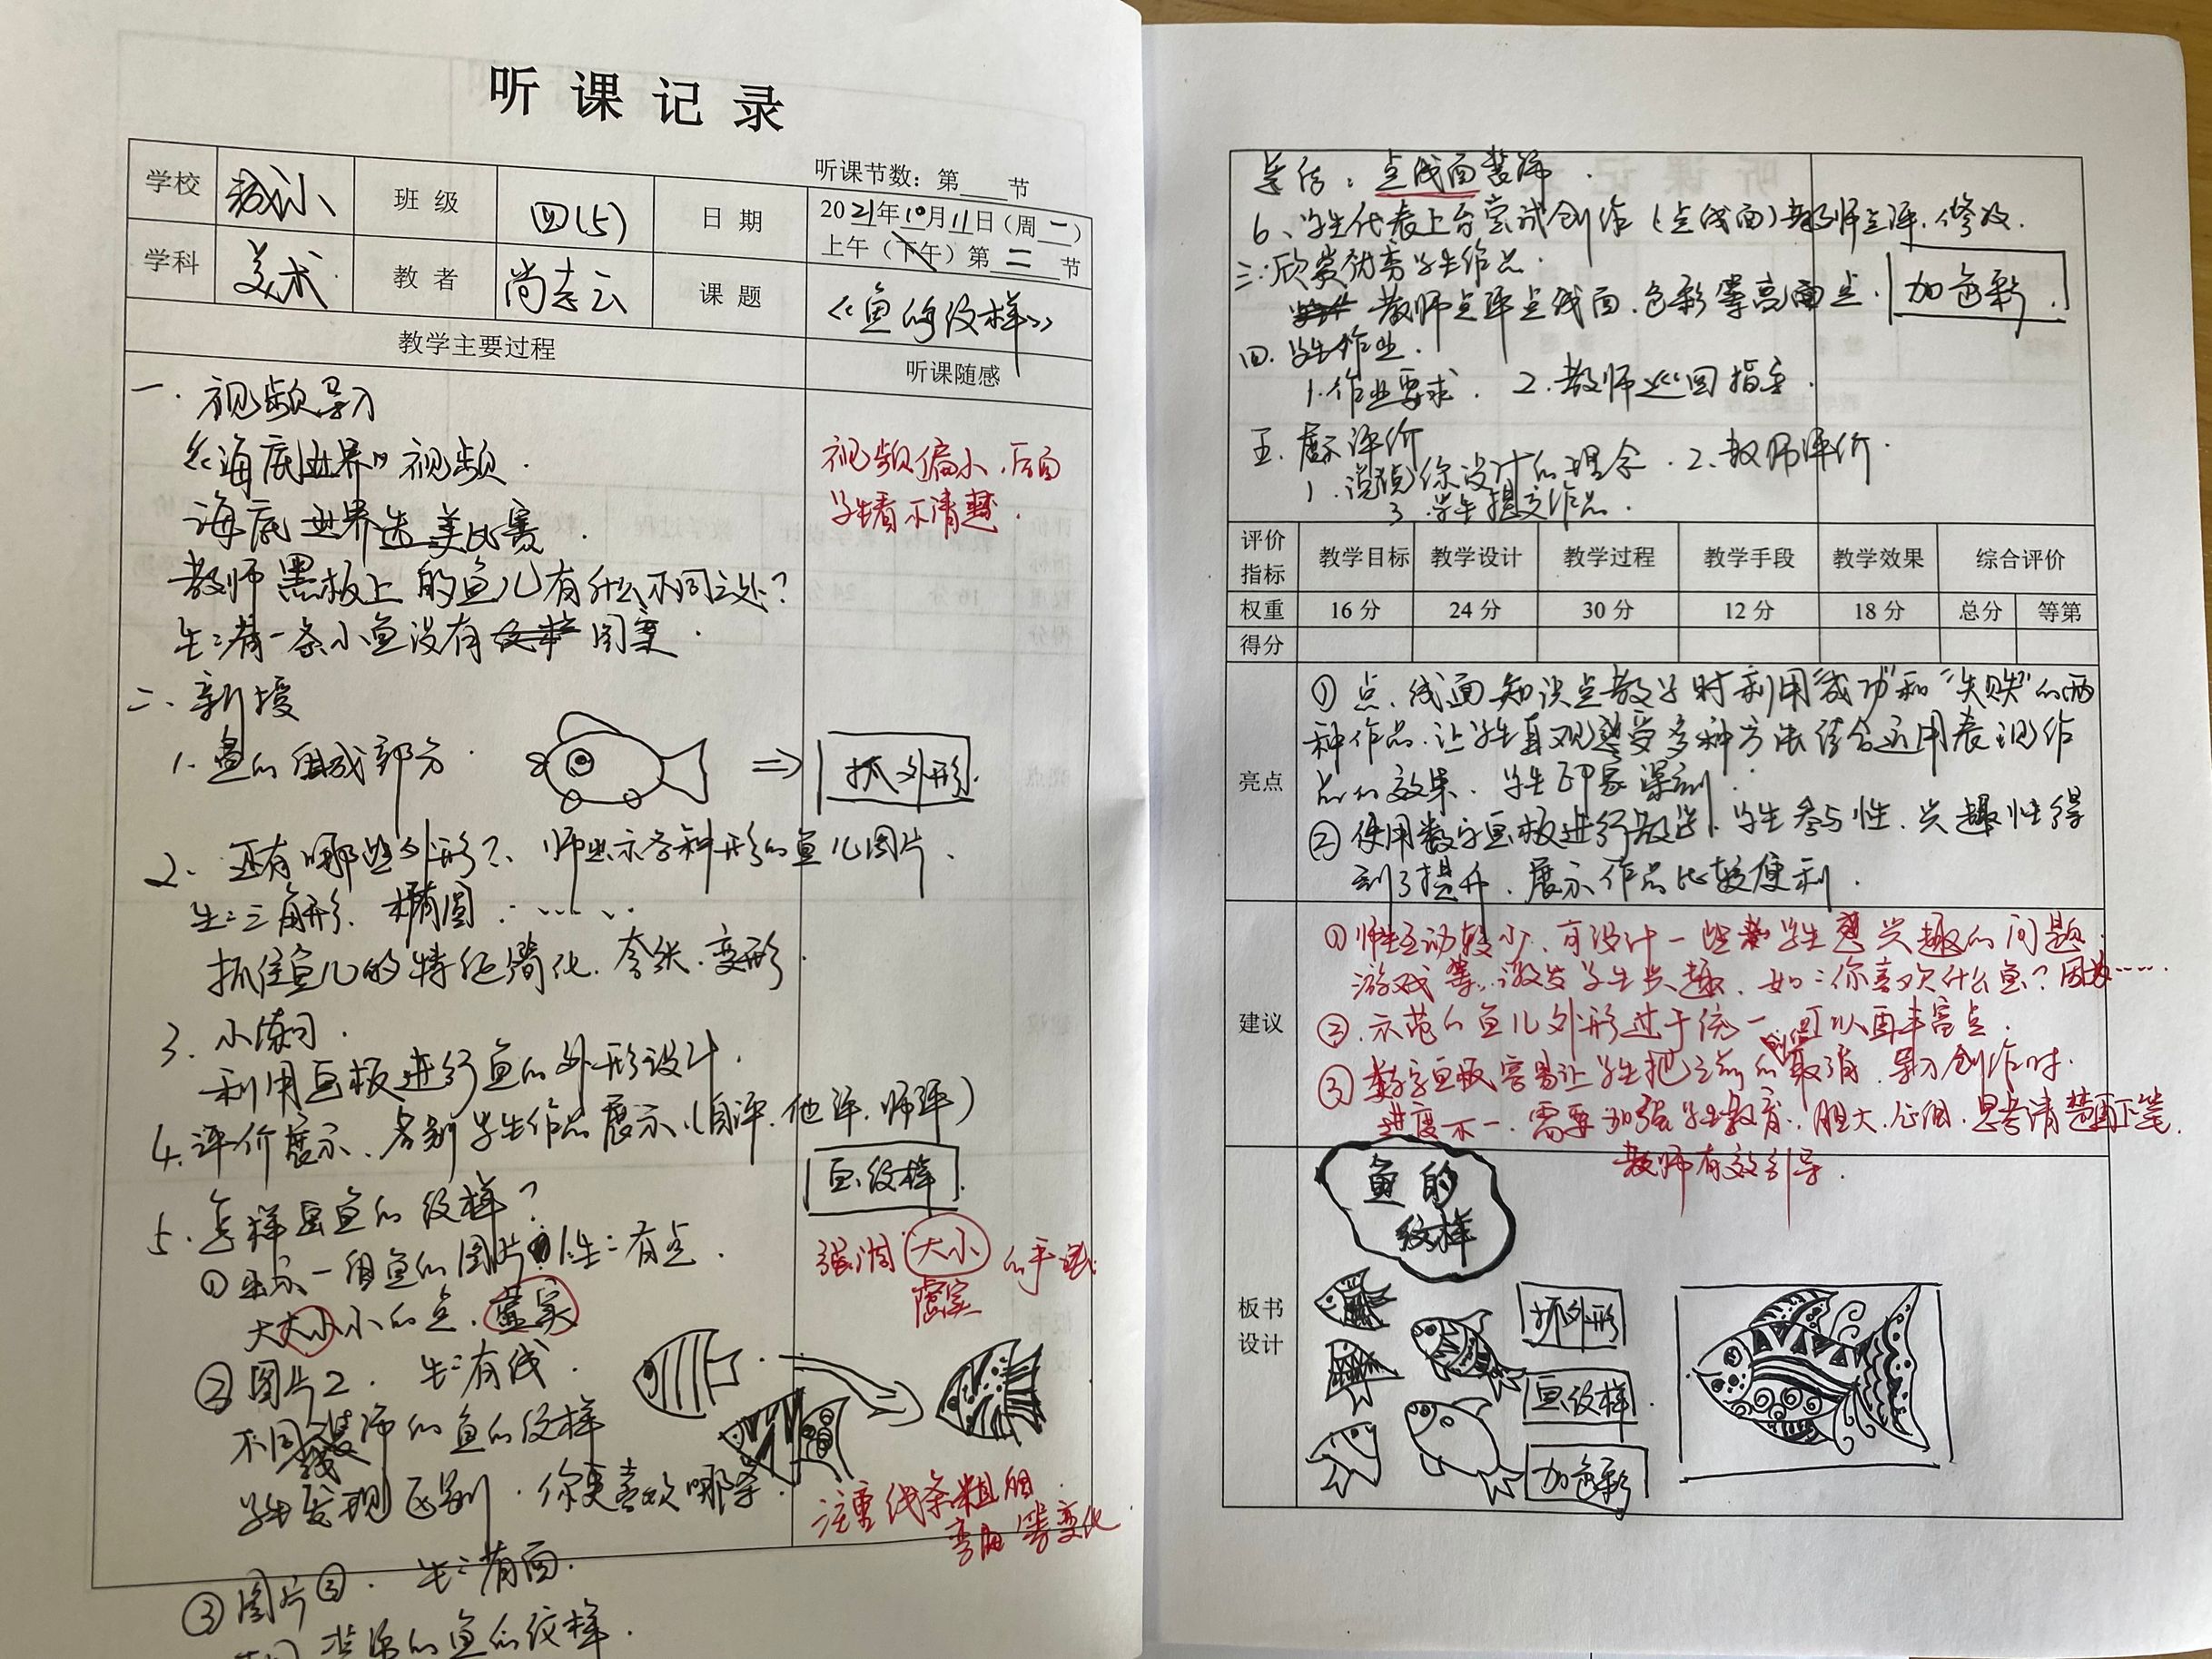 听课记录
听课节数：第 节
学校 班级 四(5) 日期 2021年10月11日（周一）
上午（下午）第二节
学科 美术 教者 尚志云 课题 《鱼的纹样》
教学主要过程 听课随感
一. 视频导入
《海底世界》视频.
海底世界选美比赛.
教师黑板上的鱼儿有什么不同之处?
生:有一条小鱼没有图案.
视频偏小,后面
学生看不清楚.
二、新授
1. 鱼的组成部分. ⇒ 抓外形.
2. 还有哪些外形?、师出示各种形的鱼儿图片、
生:三角形、椭圆......
抓住鱼儿的特征简化.夸张.变形.
3. 小练习.
利用画板进行鱼的外形设计.
4. 评价展示、各别学生作品展示.(自评.他评.师评)
5. 怎样画鱼的纹样?
画纹样.
①出示一组鱼的图片. 生:有点.
大大小小的点.虚实
强调大小 的手法
虚实
②图片2. 生:有线.
不同装饰的鱼的纹样
学生发现区别.你更喜欢哪条.
注重线条粗细
弯曲等变化
③图片③. 生:有面.
装饰的鱼的纹样.
总结:点线面装饰.
6、学生代表上台尝试创作(点线面)教师点评.修改.
三:欣赏优秀学生作品.
教师点评点线面.色彩等亮点. 加色彩.
四.学生作业.
1.作业要求. 2.教师巡回指导.
五.展示评价
1.说说你设计的理念. 2.教师评价.
3.学生提交作品.
评价指标 教学目标 教学设计 教学过程 教学手段 教学效果 综合评价
权重 16分 24分 30分 12分 18分 总分 等第
得分
亮点
①点、线面知识点教学时利用"成功"和"失败"的两
种作品.让学生直观感受多种方法结合运用表现作
品的效果、学生印象深刻.
②使用数字画板进行教学.学生参与性、兴趣性得
到了提升、展示作品比较便利.
建议
①师生互动较少、可设计一些学生感兴趣的问题.
游戏等.激发学生兴趣、如:你喜欢什么鱼?因为......
②示范的鱼儿外形过于统一.可以再丰富点.
③数字画板容易让学生把之前的创作取消.导致创作时.
进度不一.需要加强学生教育.胆大.心细.思考清楚再下笔.
教师有效引导.
板书设计
鱼的
纹样
抓外形
画纹样.
加色彩